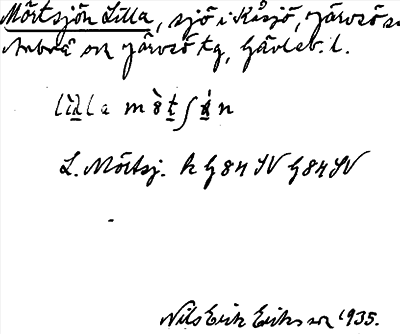 Mörtsjön Lilla, sjö i Kåsjö, Järvsö sn
Arbrå o Järvsö tg, Gävleb. l.
lilla mö̀tʃɑ́n
L. Mörtsj. k G 84 SV G 84 SV
Nils Erik Eriksson 1935.